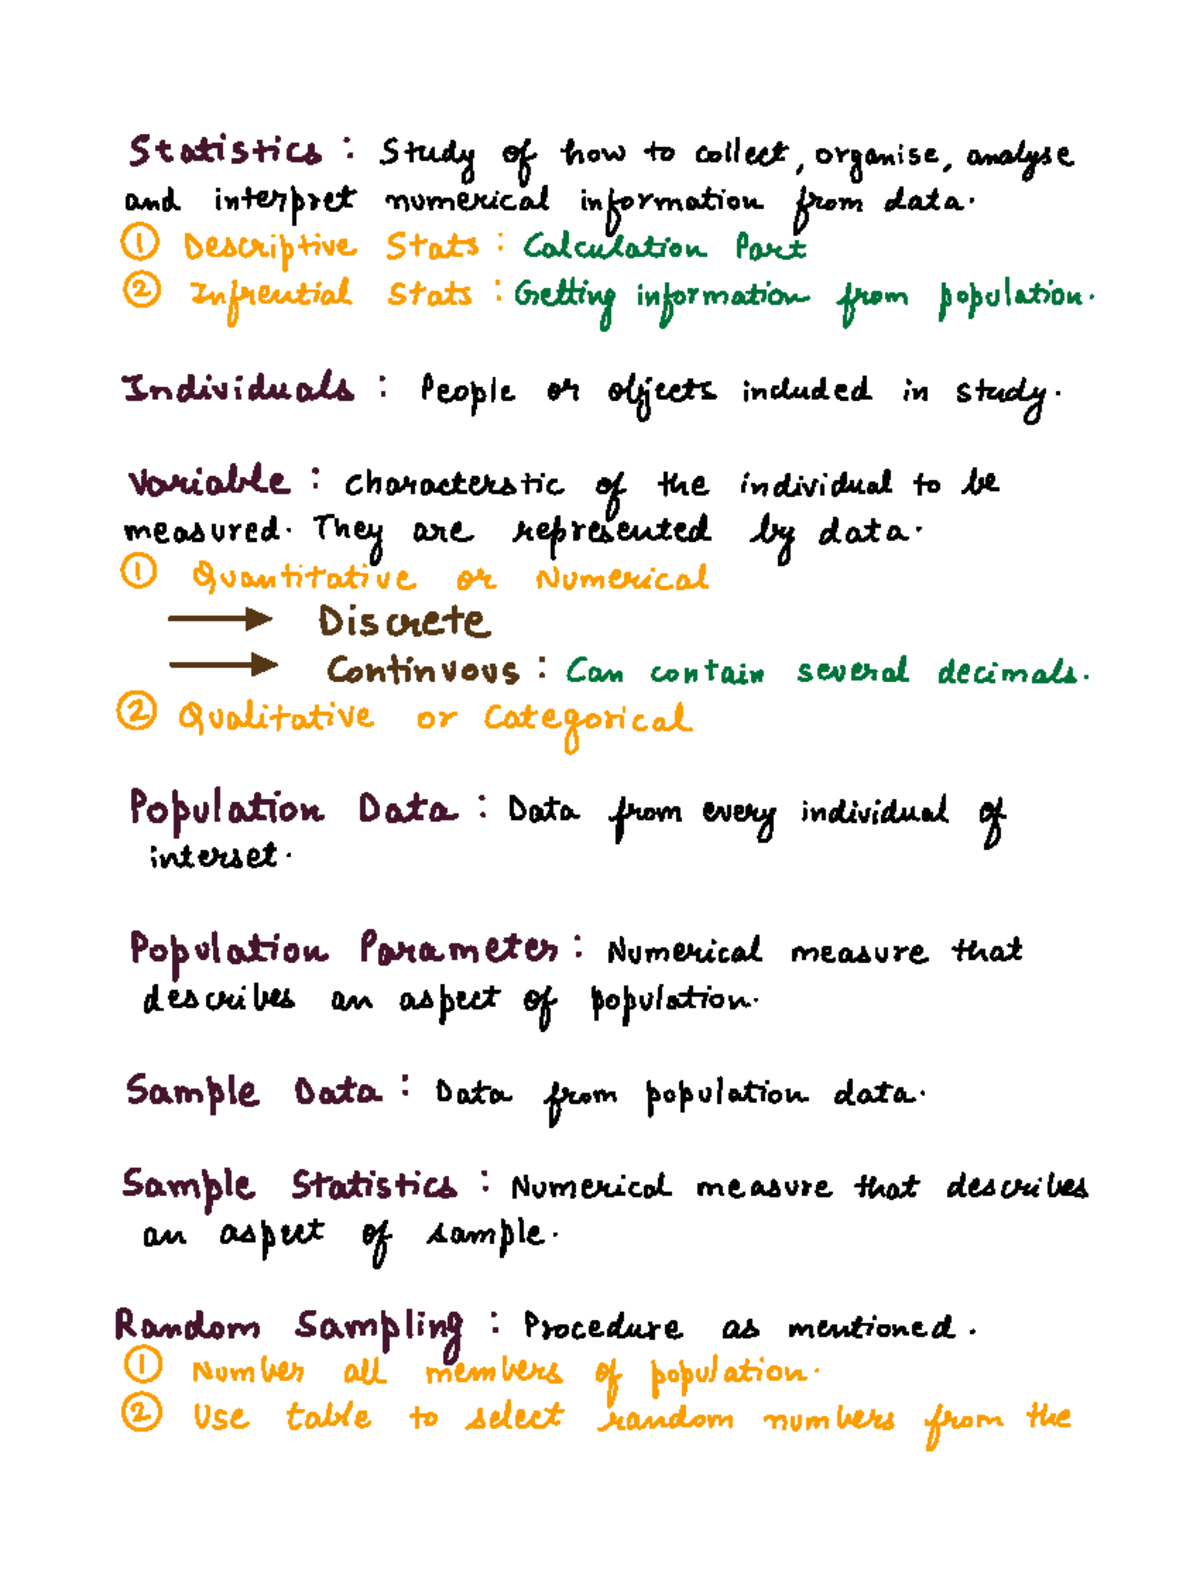 Statistics : Study of how to collect, organise, analyse
and interpret numerical information from data.
① Descriptive Stats : Calculation Part
② Infrential Stats : Getting information from population.
Individuals : People or objects included in study.
Variable : Characterstic of the individual to be
measured. They are represented by data.
① Quantitative or Numerical
→ Discrete
→ Continuous : Can contain several decimals.
② Qualitative or Categorical
Population Data : Data from every individual of
interset.
Population Parameter : Numerical measure that
describes an aspect of population.
Sample Data : Data from population data.
Sample Statistics : Numerical measure that describes
an aspect of sample.
Random Sampling : Procedure as mentioned.
① Number all members of population.
② Use table to select random numbers from the